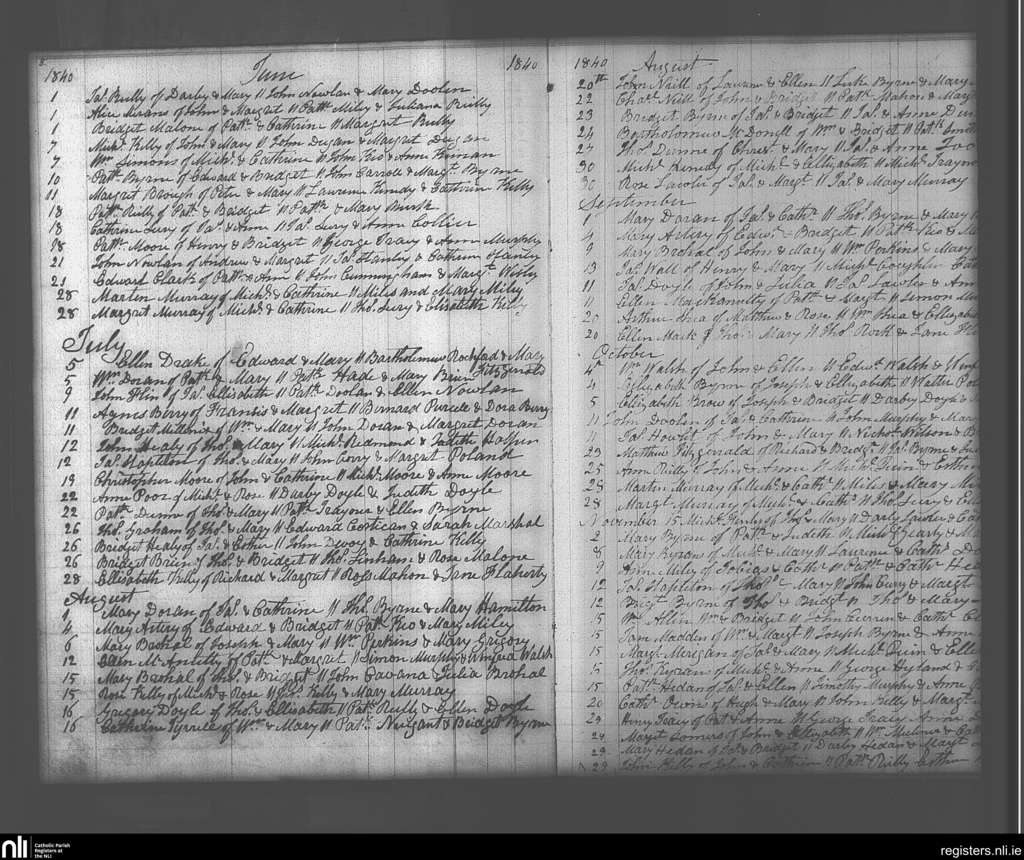 8
1840 June 1840
1 Jas. Reilly of Darby & Mary // John Nowlan & Mary Doolen
1 Alice Kirans of John & Margret // Patk. Miley & Juliana Reilly
1 Bridget Malone of Patk. & Cathrin // Margret Reilly
7 Michl. Kelly of John & Mary // John Dugan & Margret Dugan
7 Wm. Simons of Michl. & Cathrine // John Keo & Anne
10 Patk. Byrne of Edward & Bridget // John Carroll & Margt. Byrne
11 Margret Brough of Peter & Mary // Lawrence Kinedy & Cathrin Kelly
18 Patk. Reilly of Patk. & Bridget // Patk. & Mary Burk
18 Cathrine Lury of Jas. & Anne // Jas. Lury & Anne Collier
18 Patk. Moore of Henry & Bridget // George Tracy & Ann Murphy
21 John Nowlan of Andrew & Margret // Jas. Stanley & Cathrine Stanley
21 Edward Clark of Patk. & Ann // John Cunningham & Margt.
28 Martin Murray of Michl. & Cathrine // Miles and Mary Miley
28 Margret Murray of Michl. & Cathrine // Thos. Lury & Elisabeth
July
5 Ellen Drake of Edward & Mary // Bartholomew Rochfod & Mary
Fitzgerald
5 Wm. Doran of Patk. & Mary // Patk. Hade & Mary Brien
9 John Flin of Jas. & Ellisabeth // Patk. Doolan & Ellen Nowlan
11 Agnes Berry of Francis & Margret // Bernard Purcell & Dora Berry
11 Bridget of Wm. & Mary // John Doran & Margret Doran
12 John Healy of Thos. & Mary // Michl. Redmond & Judith
12 Jas. Hapleton of Thos. & Mary // John Corry & Margret Poland
19 Christopher Moore of John & Cathrine // Michl. Moore & Anne Moore
22 Anne Poor of Michl. & Rose // Darby Doyle & Judith Doyle
22 Patk. Dunne of Thos. & Mary // Patk. Traynor & Ellen Byrne
26 Thos. Graham of Thos. & Mary // Edward Costican & Sarah Marshal
26 Bridget Healy of Jas. & Esther // John Devoy & Cathrine Kelly
26 Bridget Brien of Thos. & Bridget // Thos. Linham & Rose Malone
28 Ellisabeth Kelly of Richard & Margret // Ross Mahon & Jane Flaherty
August
1 Mary Doran of Jas. & Cathrine // Thos. Byrne & Mary Hamilton
4 Mary Artery of Edward & Bridget // Patk. Keo & Mary Miley
6 Mary Broshal of Joseph & Mary // Wm. Perkins & Mary Gregory
12 Ellen of Patk. & Margret // Simon Murphy & Walsh
15 Mary Broshal of Thos. & Bridget // John Cavana & Julia Broshal
15 Rose Kelly of Michl. & Rose // Jas. Kelly & Mary Murray
16 Gregory Doyle of Thos. & Ellisabeth // Patk. Reilly & Ellen Doyle
16 Cathrine Tyrrell of Wm. & Mary // Patk. Neugant & Bridget Byrne
1840 August
20th John Neill of Lawrence & Ellen // Luke Byrne & Mary
22 Chas. Neill of John & Bridget // Patk. Mahon & Marg
23 Bridget Byrne of Jas. & Bridget // Jas. & Anne
24 Bartholomew McDonell of Wm. & Bridget // Patk. Smith
27 Thos. Dunne of Christr. & Mary // Jas. & Anne
30 Michl. Kenedy of Michl. & Ellizabeth // Michl. Trayno
30 Rose Lawler of Jas. & Margt. // Jas. & Mary Murray
September
1 Mary Doran of Jas. & Cathe. // Thos. Byrne & Mary
4 Mary Artery of Edwd. & Bridget // Patk. Keo & M
9 Mary Broshal of John & Mary // Wm. Perkins & Mary
13 Jas. Wall of Henry & Mary // Michl. Coughlin
11 Jas. Doyle of John & Julia // Jas. Lawler & Ann
11 Ellen of Patk. & Margt. // Simon
20 Arthur Shea of Matthew & Rose // Wm. Shea & Ellizab
20 Ellen Mark of Thos. & Mary // Thos. Rortk & Jane
October
4 Wm. Walsh of John & Ellen // Edwd. Walsh & Winf
4 Ellizabeth Byrne of Joseph & Ellizabeth // Walter
5 Ellizabeth Brow of Joseph & Bridget // Darby Doyle &
11 John Doolen of Jas. & Cathrin // John Murphy & Mary
11 Jas. Howlet of John & Mary // Nichs. Wilson & B
23 Matthew Fitzgerald of Richard & Bridgt. // Jas. Byrne &
25 Ann Reilly of John & Anne // Michl. Quin &
28 Martin Murray of Michl. & Cathe. // Miles & Mary M
28 Margt. Murray of Michl. & Cathe. // Thos. Lury & El
November 15 Michl. of Thos. & Mary // Darby Lawler &
2 Mary Byrne of Patk. & Judith // & M
8 Mary Kyrans of Michl. & Mary // Laurence & Cathe.
9 Ann Miley of Tobias & Cathe. // Patk. & Cathe.
12 Jas. Hapleton of Thos. & Mary // John Curry & Margt.
12 Bridgt. Byrne of Thos. & Bridgt. // Thos. & Mary
15 Wm. Allin Wm. & Bridget // John Curren & Cathe.
15 Tom Madden of Wm. & Margt. // Joseph Byrne & Anne
15 Margt. Morgan of Jas. & Mary // Michl. Quin & Elle
15 Thos. Kyrans of Michl. & Anne // George Hyland &
15 Patk. Hedan of Jas. & Ellen // Timothy Murphy & Anne
20 Cathe. Owens of Hugh & Mary // John Kelly & Margt.
29 Henry Tracy of Pat & Anne // George Tracy Anne
29 Margt. Somers of John & Ellizabeth // Wm.
29 Mary Hedan of Jas. & Bridget // Darby Hedan & Margt.
29 John Kelly of John & Cathrine // Patk. Reilly
nli
Catholic Parish
Registers at
the NLI
registers.nli.ie